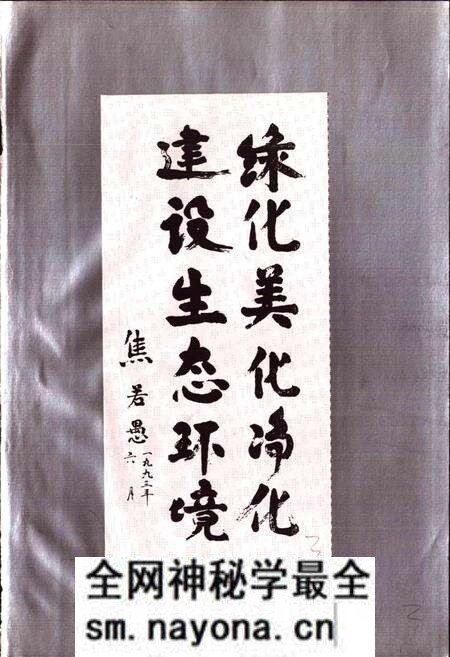 绿化美化净化
建设生态环境
焦若愚
一九九三年
六月
全网神秘学最全
sm.nayona.cn